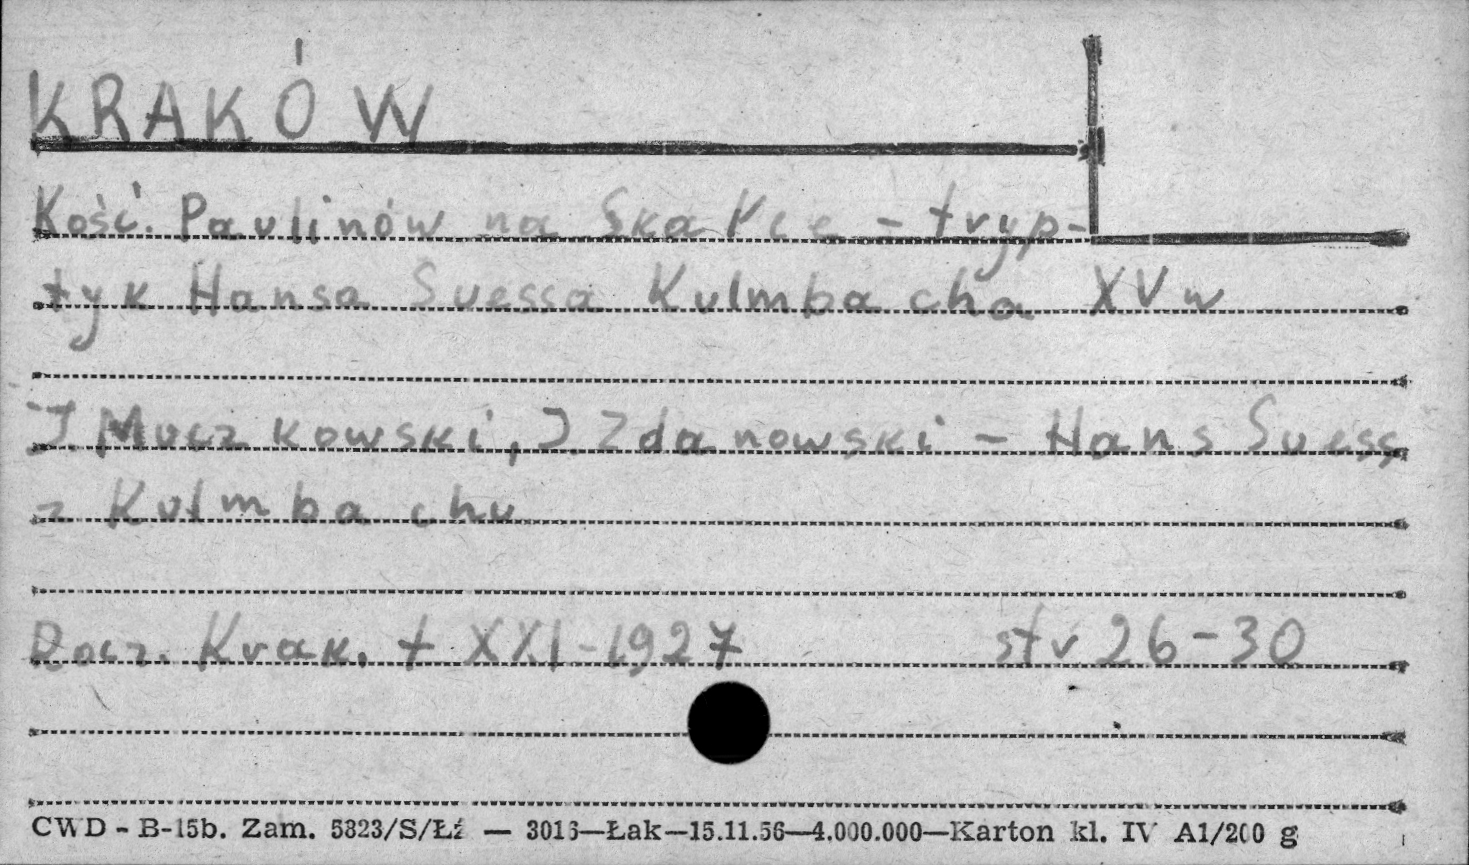 KRAKÓW
Kość. Paulinów na Skałce - tryp-
tyk Hansa Suessa Kulmbacha XV w
J. Muczkowski, J. Zdanowski - Hans Suess
z Kulmbachu
Rocz. Krak. t XXI-1927 str 26-30
CWD - B-15b. Zam. 5823/S/Łź — 3013—Łak—15.11.56—4.000.000—Karton kl. IV A1/200 g